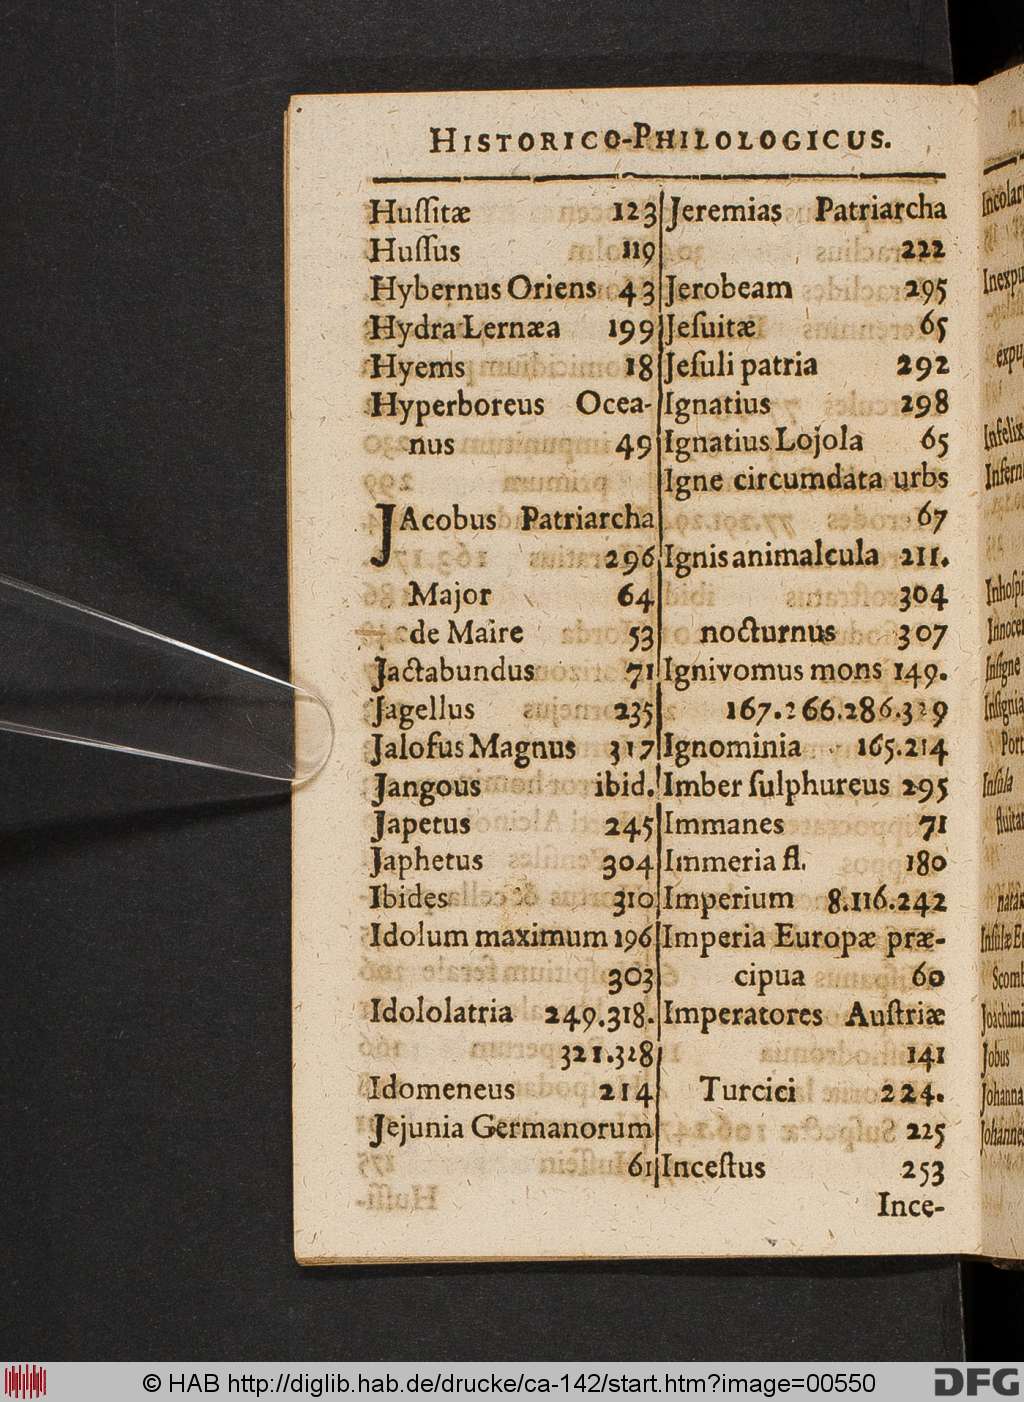 HISTORICO-PHILOLOGICUS.
Huſſitæ 123
Huſſus 119
Hybernus Oriens 43
Hydra Lernæa 199
Hyems 18
Hyperboreus Ocea-
nus 49
JAcobus Patriarcha
296
Major 64
de Maire 53
Jactabundus 71
Jagellus 235
Jalofus Magnus 317
Jangous ibid.
Japetus 245
Japhetus 304
Ibides 310
Idolum maximum 196
303
Idololatria 249.318.
321.328
Idomeneus 214
Jejunia Germanorum
61
Jeremias Patriarcha
222
Jerobeam 295
Jeſuitæ 65
Jeſuli patria 292
Ignatius 298
Ignatius Lojola 65
Igne circumdata urbs
67
Ignis animalcula 211.
304
nocturnus 307
Ignivomus mons 149.
167.266.286.329
Ignominia 165.214
Imber ſulphureus 295
Immanes 71
Immeria fl. 180
Imperium 8.116.242
Imperia Europæ præ-
cipua 60
Imperatores Auſtriæ
141
Turcici 224.
225
Inceſtus 253
Ince-
Inſula
Scomb
Jobus
© HAB http://diglib.hab.de/drucke/ca-142/start.htm?image=00550
DFG